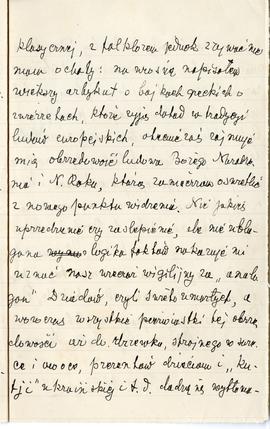 klasycznej, z folklorem jednak zrywać nie
mam ochoty: na wiosnę napisałem
większy artykuł o bajkach greckich o
zwierzętach, które żyją dotąd w tradycji
ludów europejskich, obecnie zaś zajmuje
mię obrzędowość ludowa Bożego Narodze
nia i N. Roku, którą zamierzam oświetlić
z nowego punktu widzenia. Nie jakieś
uprzedzenie czy zaślepienie, ale nieubła-
gana logika faktów nakazuje mi
uznać nasz wieczór wigilijny za „analo
gon" Dziadów, czyli święto zmarłych, a
wówczas wszystkie pierwiastki tej obrzę
dowości aż do drzewka, strojnego w
i owoce, prezentów dzieciom i „ku-
tji" ukraińskiej i t. d. dadzą się wytłoma-